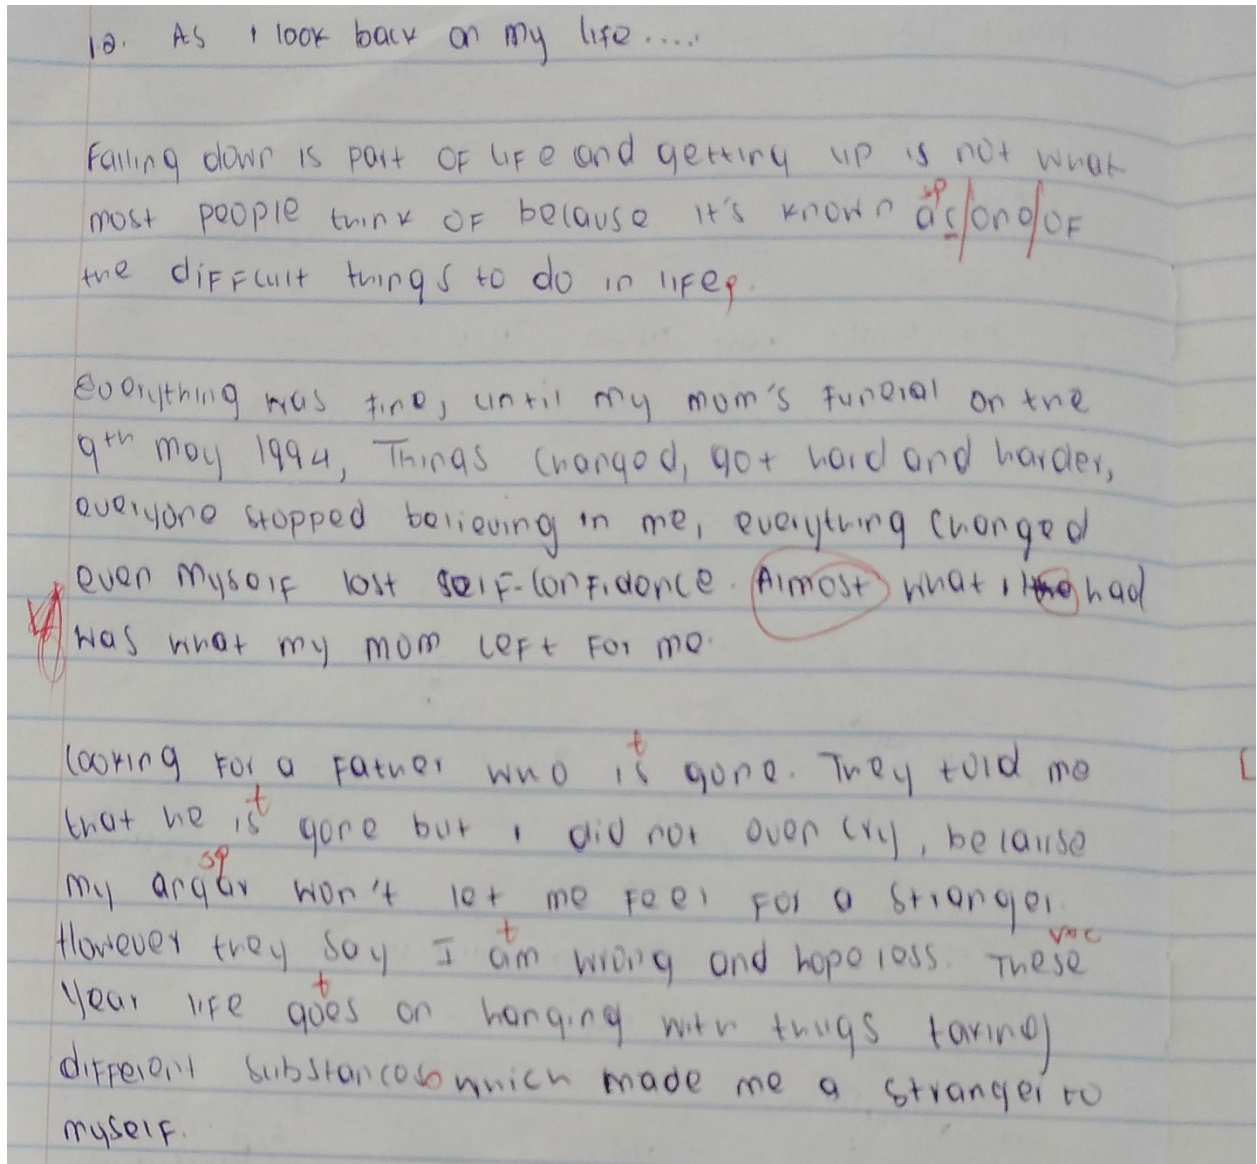 1.2. As I look back on my life.....
Falling down is part of life and getting up is not what
most people think of because it's known as/ong/of
the difficult things to do in life.
Everything was fine, until my mom's funeral on the
9th may 1994, Things changed, got hard and harder,
everyone stopped believing in me, everything changed
even myself lost self-confidence. Almost what I had
was what my mom left for me.
Looking for a father who is gone. They told me
that he is gone but I did not even cry, because
my angar won't let me feel for a stranger.
However they say I am wrong and hopeless. These
year life goes on hanging with thugs taking
different substances which made me a stranger to
myself.